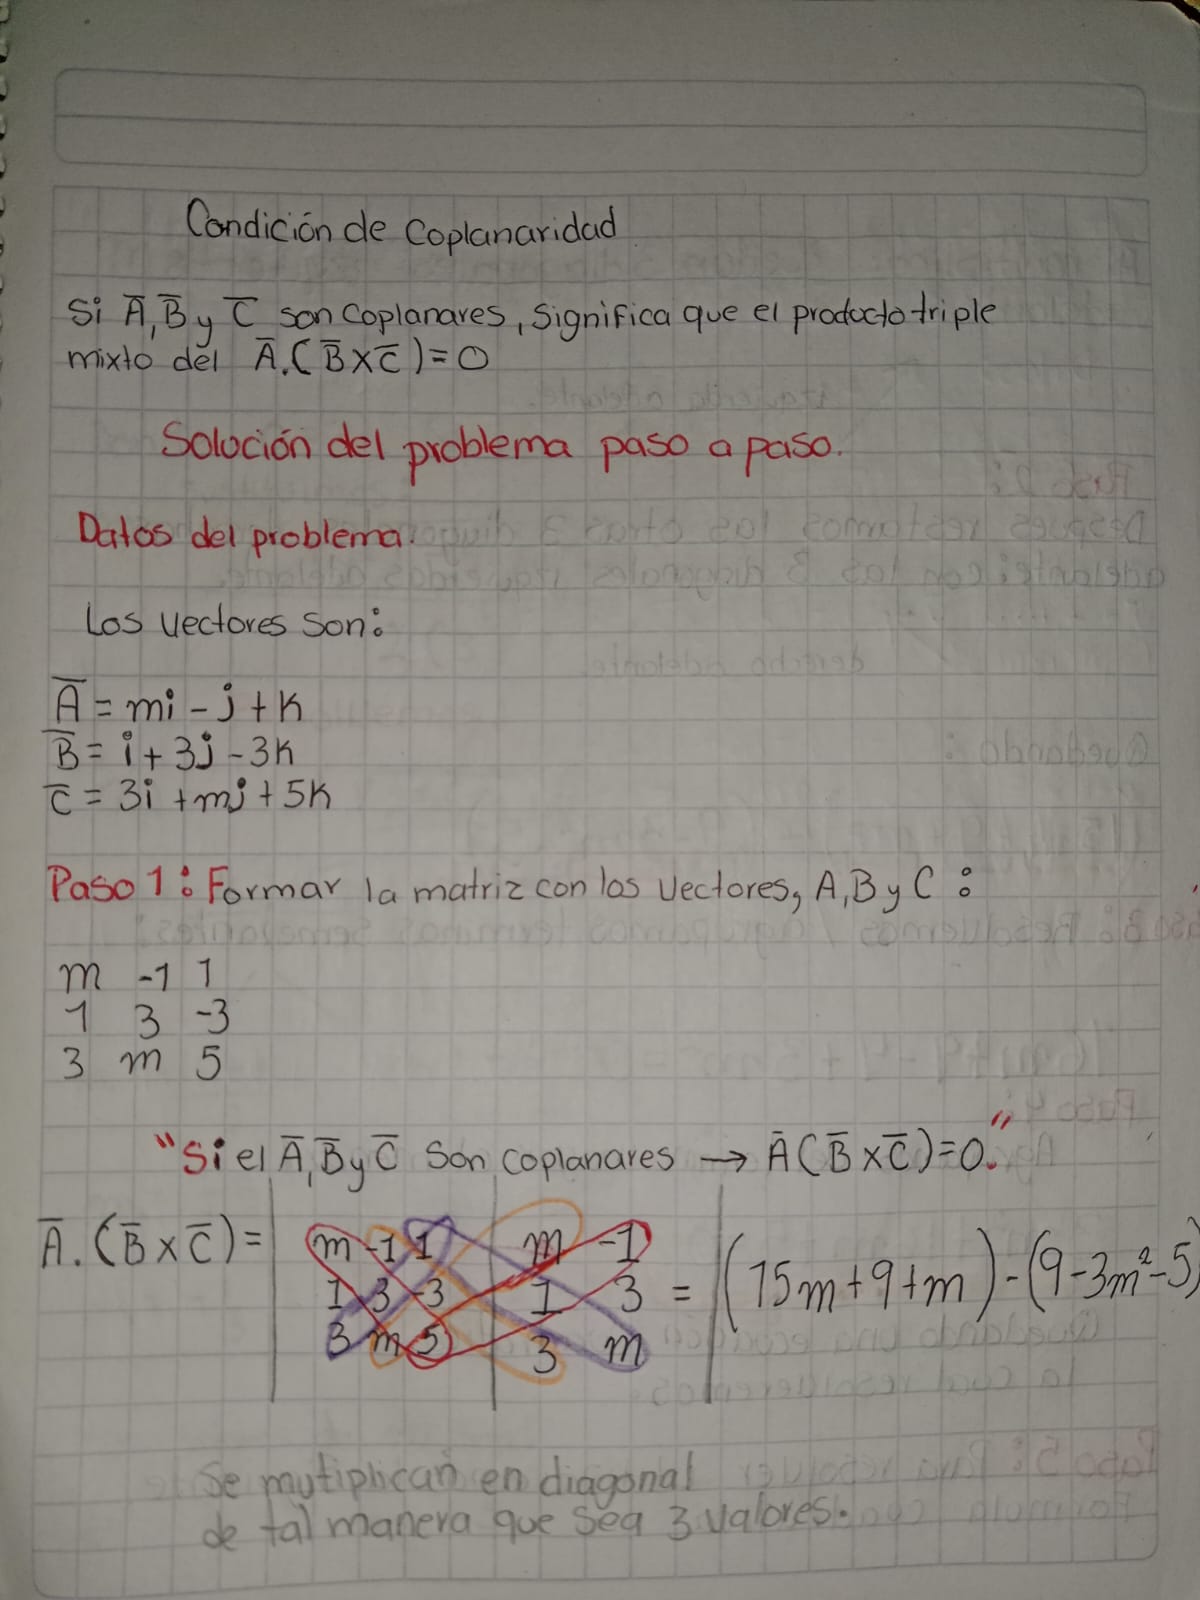 Condición de Coplanaridad
Si A̅, B̅ y C̅ son Coplanares, Significa que el producto triple
mixto del A̅.(B̅xC̅)=0
Solución del problema paso a paso.
Datos del problema.
Los Vectores son:
A̅ = mi - j + k
B̅ = i + 3j - 3k
C̅ = 3i + mj + 5k
Paso 1: Formar la matriz con los Vectores, A, B y C :
m -1 1
1 3 -3
3 m 5
"Si el A̅, B̅ y C̅ Son Coplanares → A̅(B̅xC̅)=0."
A̅.(B̅xC̅)= | m -1 1 | m -1 | = (15m+9+m)-(9-3m²-5)
1 3 -3 1 3
3 m 5 3 m
Se mutiplican en diagonal
de tal manera que Sea 3 valores.